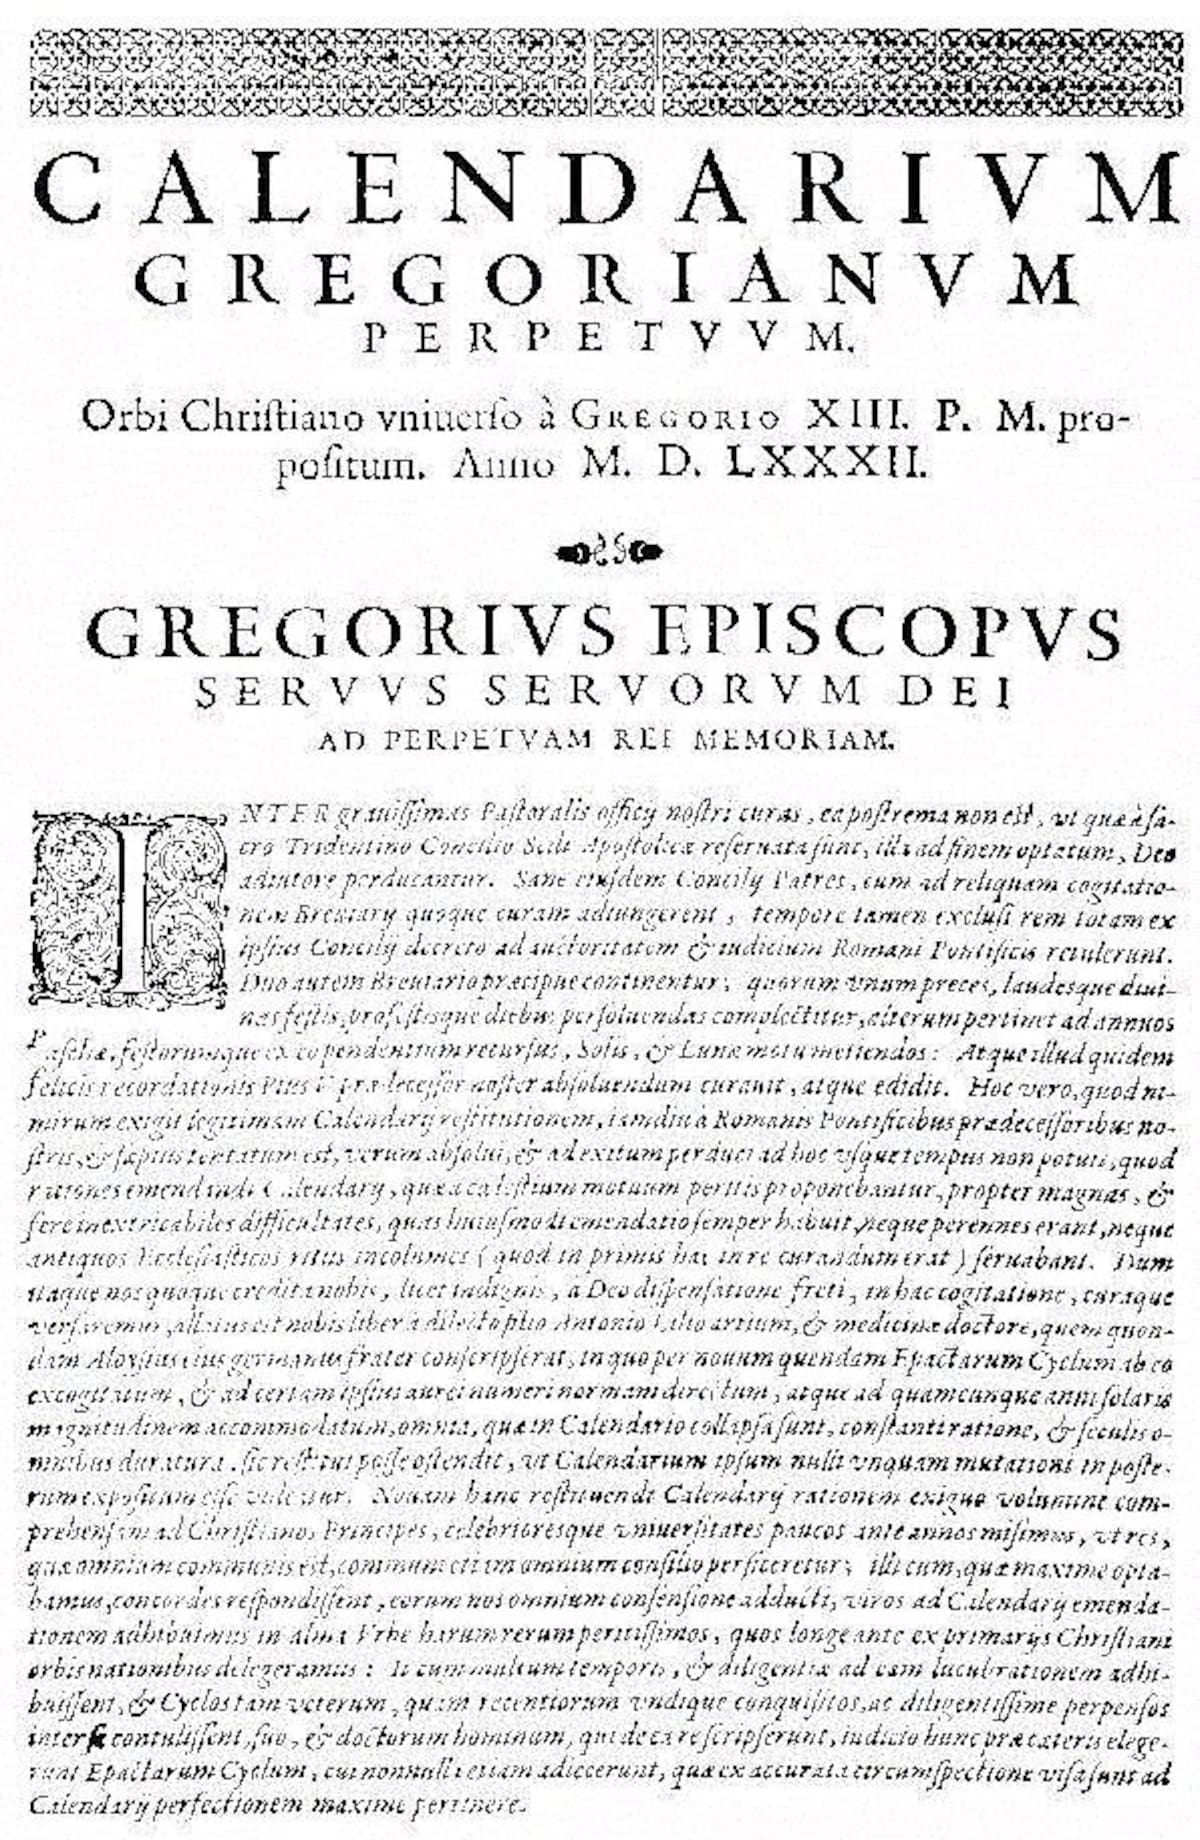 CALENDARIVM
GREGORIANVM
PERPETVVM.
Orbi Chriſtiano vniuerſo à GREGORIO XIII. P. M. pro-
poſitum. Anno M. D. LXXXII.
GREGORIVS EPISCOPVS
SERVVS SERVORVM DEI
AD PERPETVAM REI MEMORIAM.
INTER grauiſſimas Paſtoralis officij noſtri curas, ea poſtrema non eſt, vt quæ à ſa-
cro Tridentino Concilio Sedi Apoſtolicæ reſeruata ſunt, illa ad finem optatum, Deo
adiutore perducantur. Sane eiuſdem Concilij Patres, cum ad reliquam cogitatio-
nem Breuiarij quoque curam adiungerent, tempore tamen excluſi rem totam ex
ipſius Concilij decreto ad auctoritatem & iudicium Romani Pontificis retulerunt.
Duo autem Breuiario præcipue continentur; quorum vnum preces, laudesque diui-
nas feſtis, profeſtisque diebus perſoluendas complectitur, alterum pertinet ad annuos
Paſchæ, feſtorumque ex eo pendentium recurſus, Solis, & Lunæ motu metiendos: Atque illud quidem
felicis recordationis Pius V. prædeceſſor noſter abſoluendum curauit, atque edidit. Hoc vero, quod ni-
mirum exigit legitimam Calendarij reſtitutionem, iamdiu à Romanis Pontificibus prædeceſſoribus no-
ſtris, & ſæpius tentatum eſt, verum abſolui, & ad exitum perduci ad hoc vſque tempus non potuit, quod
rationes emendandi Calendarij, quæ a cæleſtium motuum peritis proponebantur, propter magnas, &
fere inextricabiles difficultates, quas huiuſmodi emendatio ſemper habuit, neque perennes erant, neque
antiquos Eccleſiaſticos ritus incolumes (quod in primis hac in re curandum erat) ſeruabant. Dum
itaque nos quoque credita nobis, licet indignis, a Deo diſpenſatione freti, in hac cogitatione, curaque
verſaremur, allatus eſt nobis liber à dilecto filio Antonio Lilio artium, & medicinæ doctore, quem quon-
dam Aloyſius eius germanus frater conſcripſerat, in quo per nouum quendam Epactarum Cyclum ab eo
excogitatum, & ad certam ipſius aurei numeri normam directum, atque ad quamcunque anni ſolaris
magnitudinem accommodatum, omnia, quæ in Calendario collapſa ſunt, conſtanti ratione, & ſeculis o-
mnibus duratura, ſic reſtitui poſſe oſtendit, vt Calendarium ipſum nulli vnquam mutationi in poſte-
rum expoſitum eſſe videatur. Nouam hanc reſtituendi Calendarij rationem exiguo volumine com-
prehenſam ad Chriſtianos Principes, celebrioresque vniuerſitates paucos ante annos miſimus, vt res,
quæ omnium communis eſt, communi etiam omnium conſilio perficeretur; illi cum, quæ maxime opta-
bamus, concordes reſpondiſſent, eorum nos omnium conſenſione adducti, viros ad Calendarij emenda-
tionem adhibuimus in alma Vrbe harum rerum peritiſſimos, quos longe ante ex primarijs Chriſtiani
orbis nationibus delegeramus: Ii cum multum temporis, & diligentiæ ad eam lucubrationem adhi-
buiſſent, & Cyclos tam veterum, quam recentiorum vndique conquiſitos, ac diligentiſſime perpenſos
inter ſe contuliſſent, ſuo, & doctorum hominum, qui de ea re ſcripſerunt, iudicio hunc præ cæteris elege-
runt Epactarum Cyclum, cui nonnulla etiam adiecerunt, quæ ex accurata circumſpectione viſa ſunt ad
Calendarij perfectionem maxime pertinere.